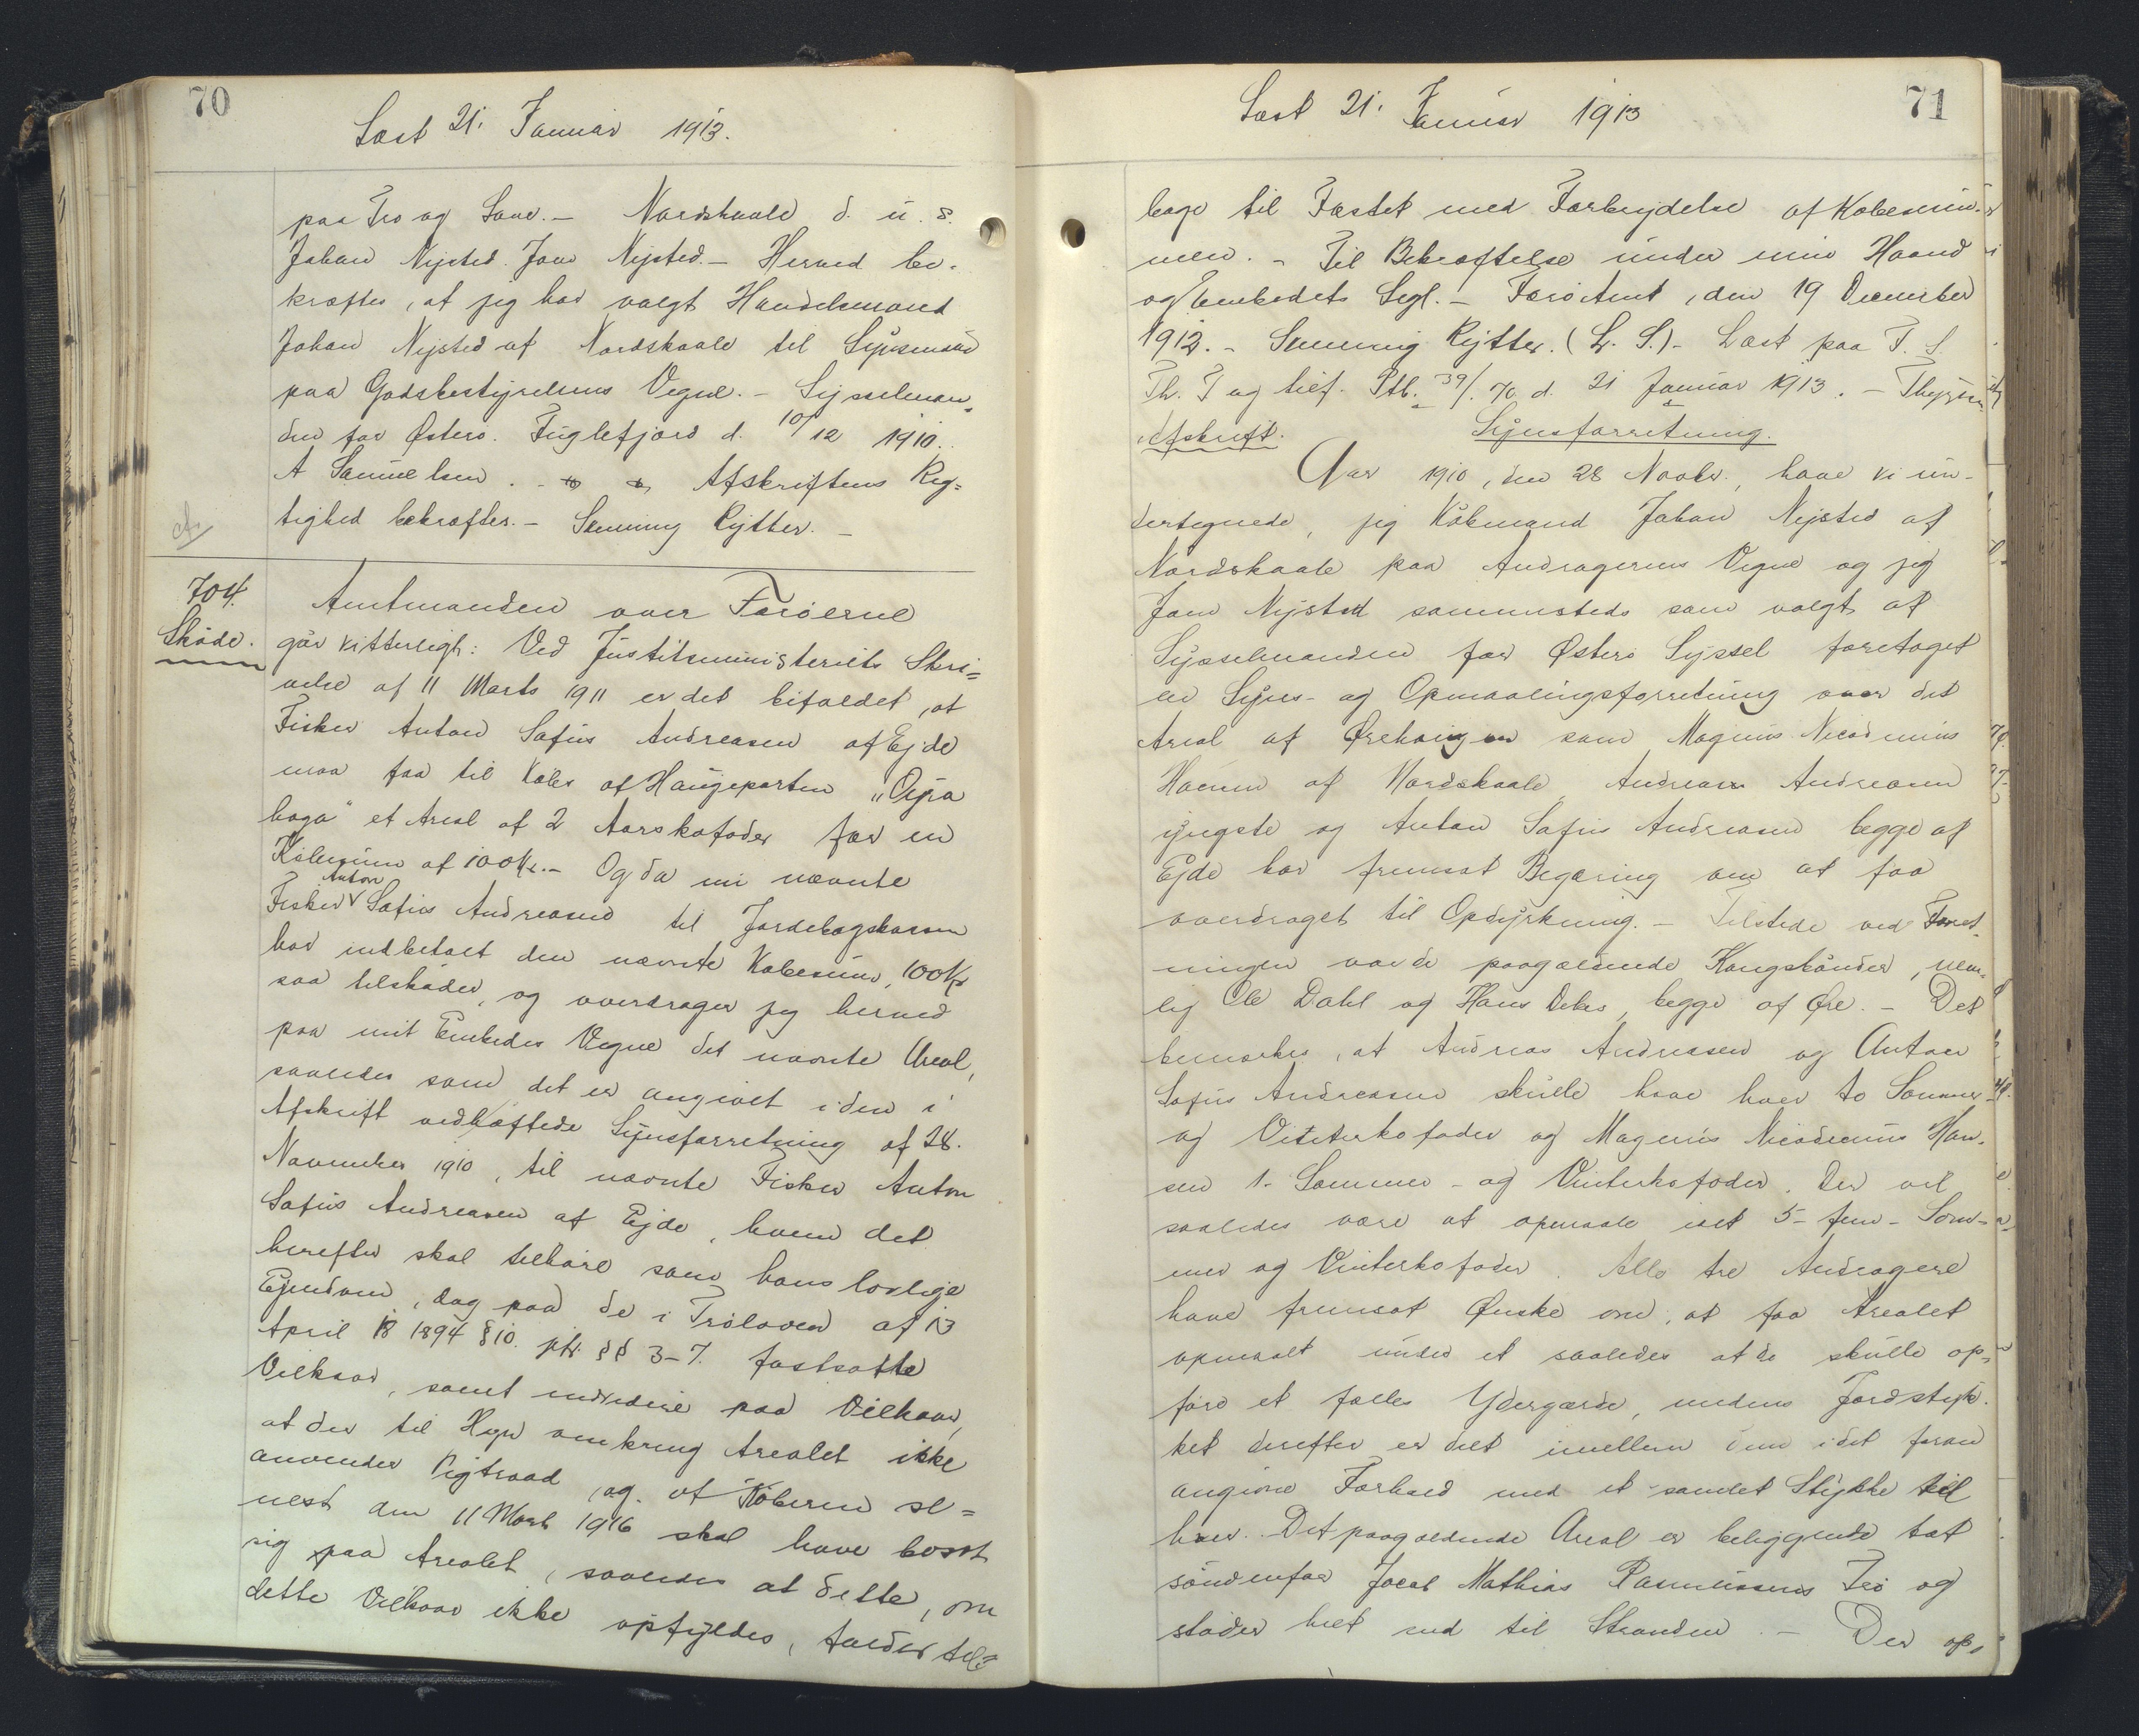 70
Læst 21. Januar 1913.
paa Tro og Love. - Nordskaale d. u. s.
Johan Nysted. Joen Nysted. - Herved be-
kræftes, at jeg har valgt Handelsmand
Johan Nysted af Nordskaale til Synsmand
paa Godsbestyrelsens Vegne. - Sysselman-
den for Østerø. Fuglefjord d. 10/12 1910.
A Samuelsen. - Afskriftens Rig=
tighed bekræftes. - Svenning Rytter. -
704.
Skøde.
Amtmanden over Færøerne
gør vitterligt: Ved Justitsministeriets Skri=
velse af 11 Marts 1911 er det bifaldet, at
Fisker Anton Sofus Andreasen af Ejde
maa faa til Købs af Haugeparten "Oyra
haga" et Areal af 2 Aarskofoder for en
Købesum af 100 Kr. - Og da nu nævnte
Fisker Anton Sofus Andreasen til Jordebogskassen
har indbetalt den nævnte Købesum, 100 Kr
saa tilskøder, og overdrager jeg herved
paa mit Embedes Vegne det nævnte Areal,
saaledes som det er angivet i den i
Afskrift vedhæftede Synsforretning af 28.
November 1910, til nævnte Fisker Anton
Sofus Andreasen af Ejde, hvem det
herefter skal tilhøre som hans lovlige
Ejendom, dog paa de i Trøloven af 13
April 18 1894 § 10. jfr. §§ 3-7. fastsatte
Vilkaar, samt endvidere paa Vilkaar,
at der til Hegn omkring Arealet ikke
anvendes Pigtraad, og at Køberen se=
nest den 11 Marts 1916 skal have bosat
sig paa Arealet, saaledes at dette, om
dette Vilkaar ikke opfyldes, falder til=
71
Læst 21. Januar 1913
bage til Fæstet med Forbrydelse af Købesum-
men. - Til Bekræftelse under min Haand
og Embedets Segl. - Færø Amt, den 19 December
1912. - Svenning Rytter. (L. S.) - Læst paa F. S.
Th. T og tilf. Ptb. 39/70 d. 21 Januar 1913. -
Afskrift. Synsforretning.
Aar 1910, den 28 Novbr., have vi un-
dertegnede, jeg Købmand Johan Nysted af
Nordskaale paa Andragerens Vegne og jeg
Joen Nysted sammesteds som valgt af
Sysselmanden for Østerø Syssel foretaget
en Syns- og Opmaalingsforretning over det
Areal af Ørehaugen som Magnus Nicodemus
Hansen af Nordskaale, Andreas Andreasen
yngste og Anton Sofus Andreasen begge af
Ejde har fremsat Begæring om at faa
overdraget til Opdyrkning. - Tilstede ved Forret-
ningen var de paagældende Kongsbønder, nem-
lig Ole Dahl og Hans Debes, begge af Øre. - Det
bemærkes, at Andreas Andreasen og Anton
Sofus Andreasen skulle have hver to Sommer-
og Vinterkofoder og Magnus Nicodemus Han-
sen 1 - Sommer - og Vinterkofoder. Der vil
saaledes være at opmaale ialt 5 - fem - Som-
mer og Vinterkofoder. Alle tre Andragere
have fremsat Ønske om, at faa Arealet
opmaalt under et saaledes at de skulle op-
føre et fælles Ydergærde, medens Jordstyk-
ket derefter er delt imellem dem i det foran
angivne Forhold med et samlet Stykke til
hver. Det paagældende Areal er beliggende tæt
søndenfor Jacob Mathias Rasmussens Trø og
støder helt ned til Stranden. - Der op-